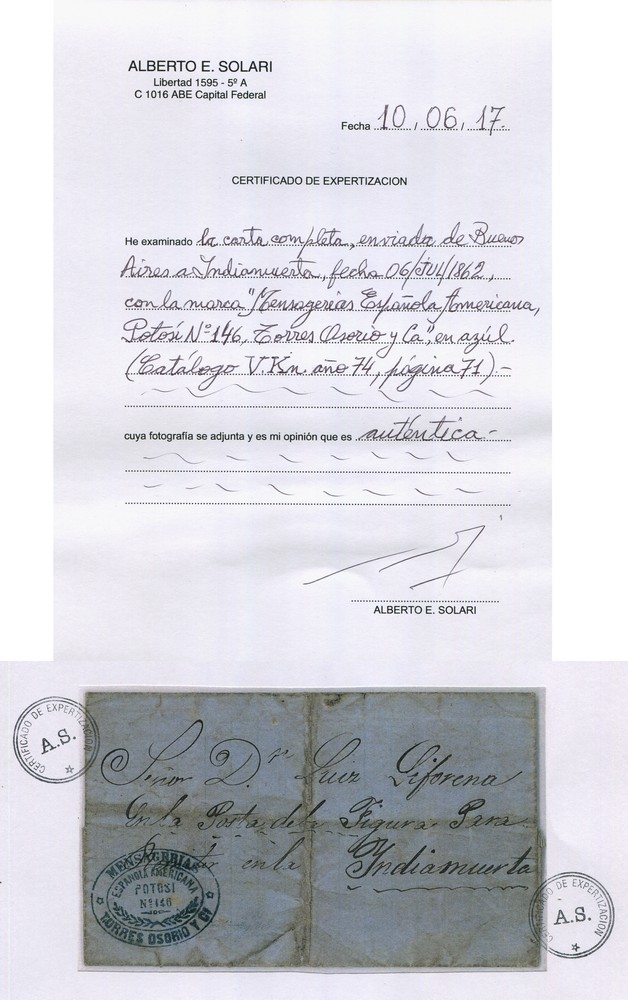 ALBERTO E. SOLARI
Libertad 1595 - 5º A
C 1016 ABE Capital Federal
Fecha 10, 06, 17.
CERTIFICADO DE EXPERTIZACION
He examinado la carta completa, enviada de Buenos
Aires a Indiamuerta, fecha 06/JUL/1862,
con la marca "Mensagerias Española Americana,
Potosí Nº 146, Torres Osorio y Ca", en azúl.
(Catálogo V.Kn. año 74, página 71).-
cuya fotografía se adjunta y es mi opinión que es auténtica.-
ALBERTO E. SOLARI
CERTIFICADO DE EXPERTIZACION
A.S.
Señor Dn Luiz Liforena
En la Posta de la Figura Para
en la Indiamuerta
MENSAGERIAS
ESPAÑOLA AMERICANA
POTOSI
Nº 146
TORRES OSORIO Y Ca
CERTIFICADO DE EXPERTIZACION
A.S.